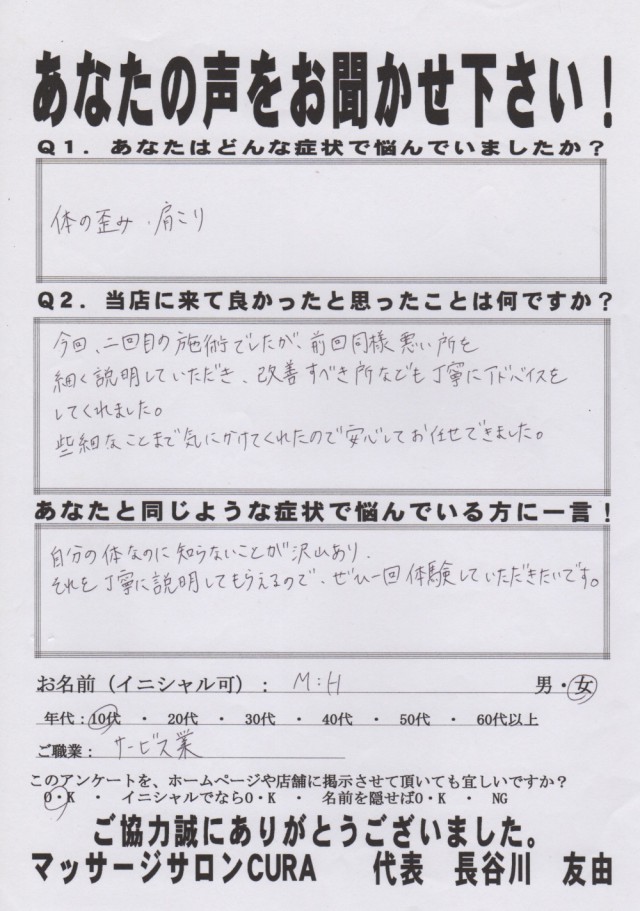 あなたの声をお聞かせ下さい！
Q1．あなたはどんな症状で悩んでいましたか？
体の歪み・肩こり
Q2．当店に来て良かったと思ったことは何ですか？
今回、二回目の施術でしたが、前回同様悪い所を
細く説明していただき、改善すべき所なども丁寧にアドバイスを
してくれました。
些細なことまで気にかけてくれたので安心してお任せできました。
あなたと同じような症状で悩んでいる方に一言！
自分の体なのに知らないことが沢山あり、
それを丁寧に説明してもらえるので、ぜひ一回体験していただきたいです。
お名前（イニシャル可）： M:H 男・女
年代：10代 ・ 20代 ・ 30代 ・ 40代 ・ 50代 ・ 60代以上
ご職業： サービス業
このアンケートを、ホームページや店舗に掲示させて頂いても宜しいですか？
O・K ・ イニシャルでならO・K ・ 名前を隠せばO・K ・ NG
ご協力誠にありがとうございました。
マッサージサロンCURA 代表 長谷川 友由